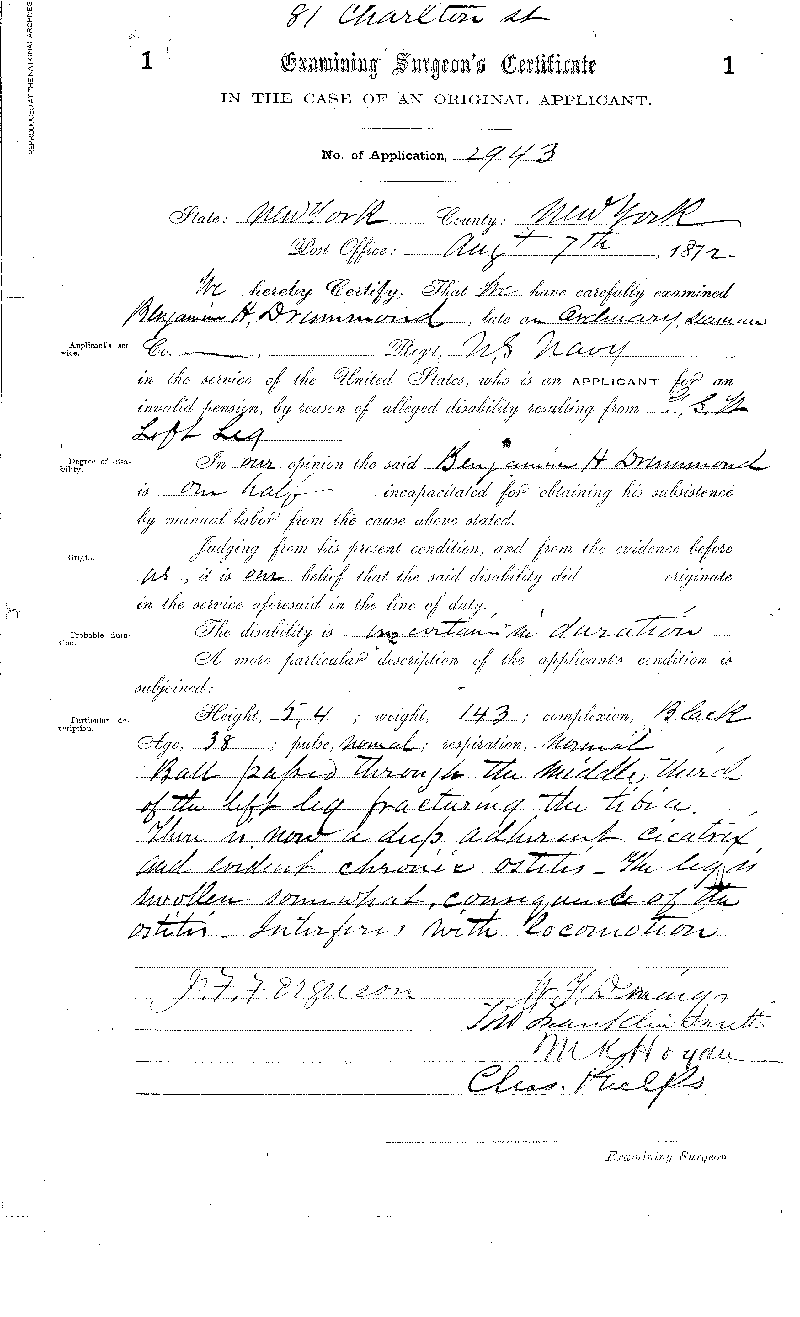 81 Charlton st
REPRODUCED AT THE NATIONAL ARCHIVES
1 Examining Surgeon's Certificate 1
IN THE CASE OF AN ORIGINAL APPLICANT.
No. of Application, 2943
State: New York County: New York
Post Office: Augt 7th, 1872.
We hereby Certify, That We have carefully examined
Benjamin H. Drummond, late an Ordinary Seaman
Applicant's service.
Co. Regt. US Navy
in the service of the United States, who is an APPLICANT for an
invalid pension, by reason of alleged disability resulting from G. S. W
Left Leg
Degree of disability.
In our opinion the said Benjamin H Drummond
is one half incapacitated for obtaining his subsistence
by manual labor from the cause above stated.
Origin.
Judging from his present condition, and from the evidence before
us, it is our belief that the said disability did originate
in the service aforesaid in the line of duty.
Probable duration.
The disability is uncertain in duration
A more particular description of the applicant's condition is
subjoined:
Particular description.
Height, 5,4; weight, 143; complexion, Black
Age, 38; pulse, normal; respiration, Normal
Ball passed through the middle third
of the left leg fracturing the tibia.
There is now a deep adherent cicatrix
and evident chronic ostitis - The leg is
swollen somewhat, consequence of the
ostitis - Interferes with locomotion
J. F. Ferguson
Franklin Smith
M K Hogan
Chas. Phelps
Examining Surgeon